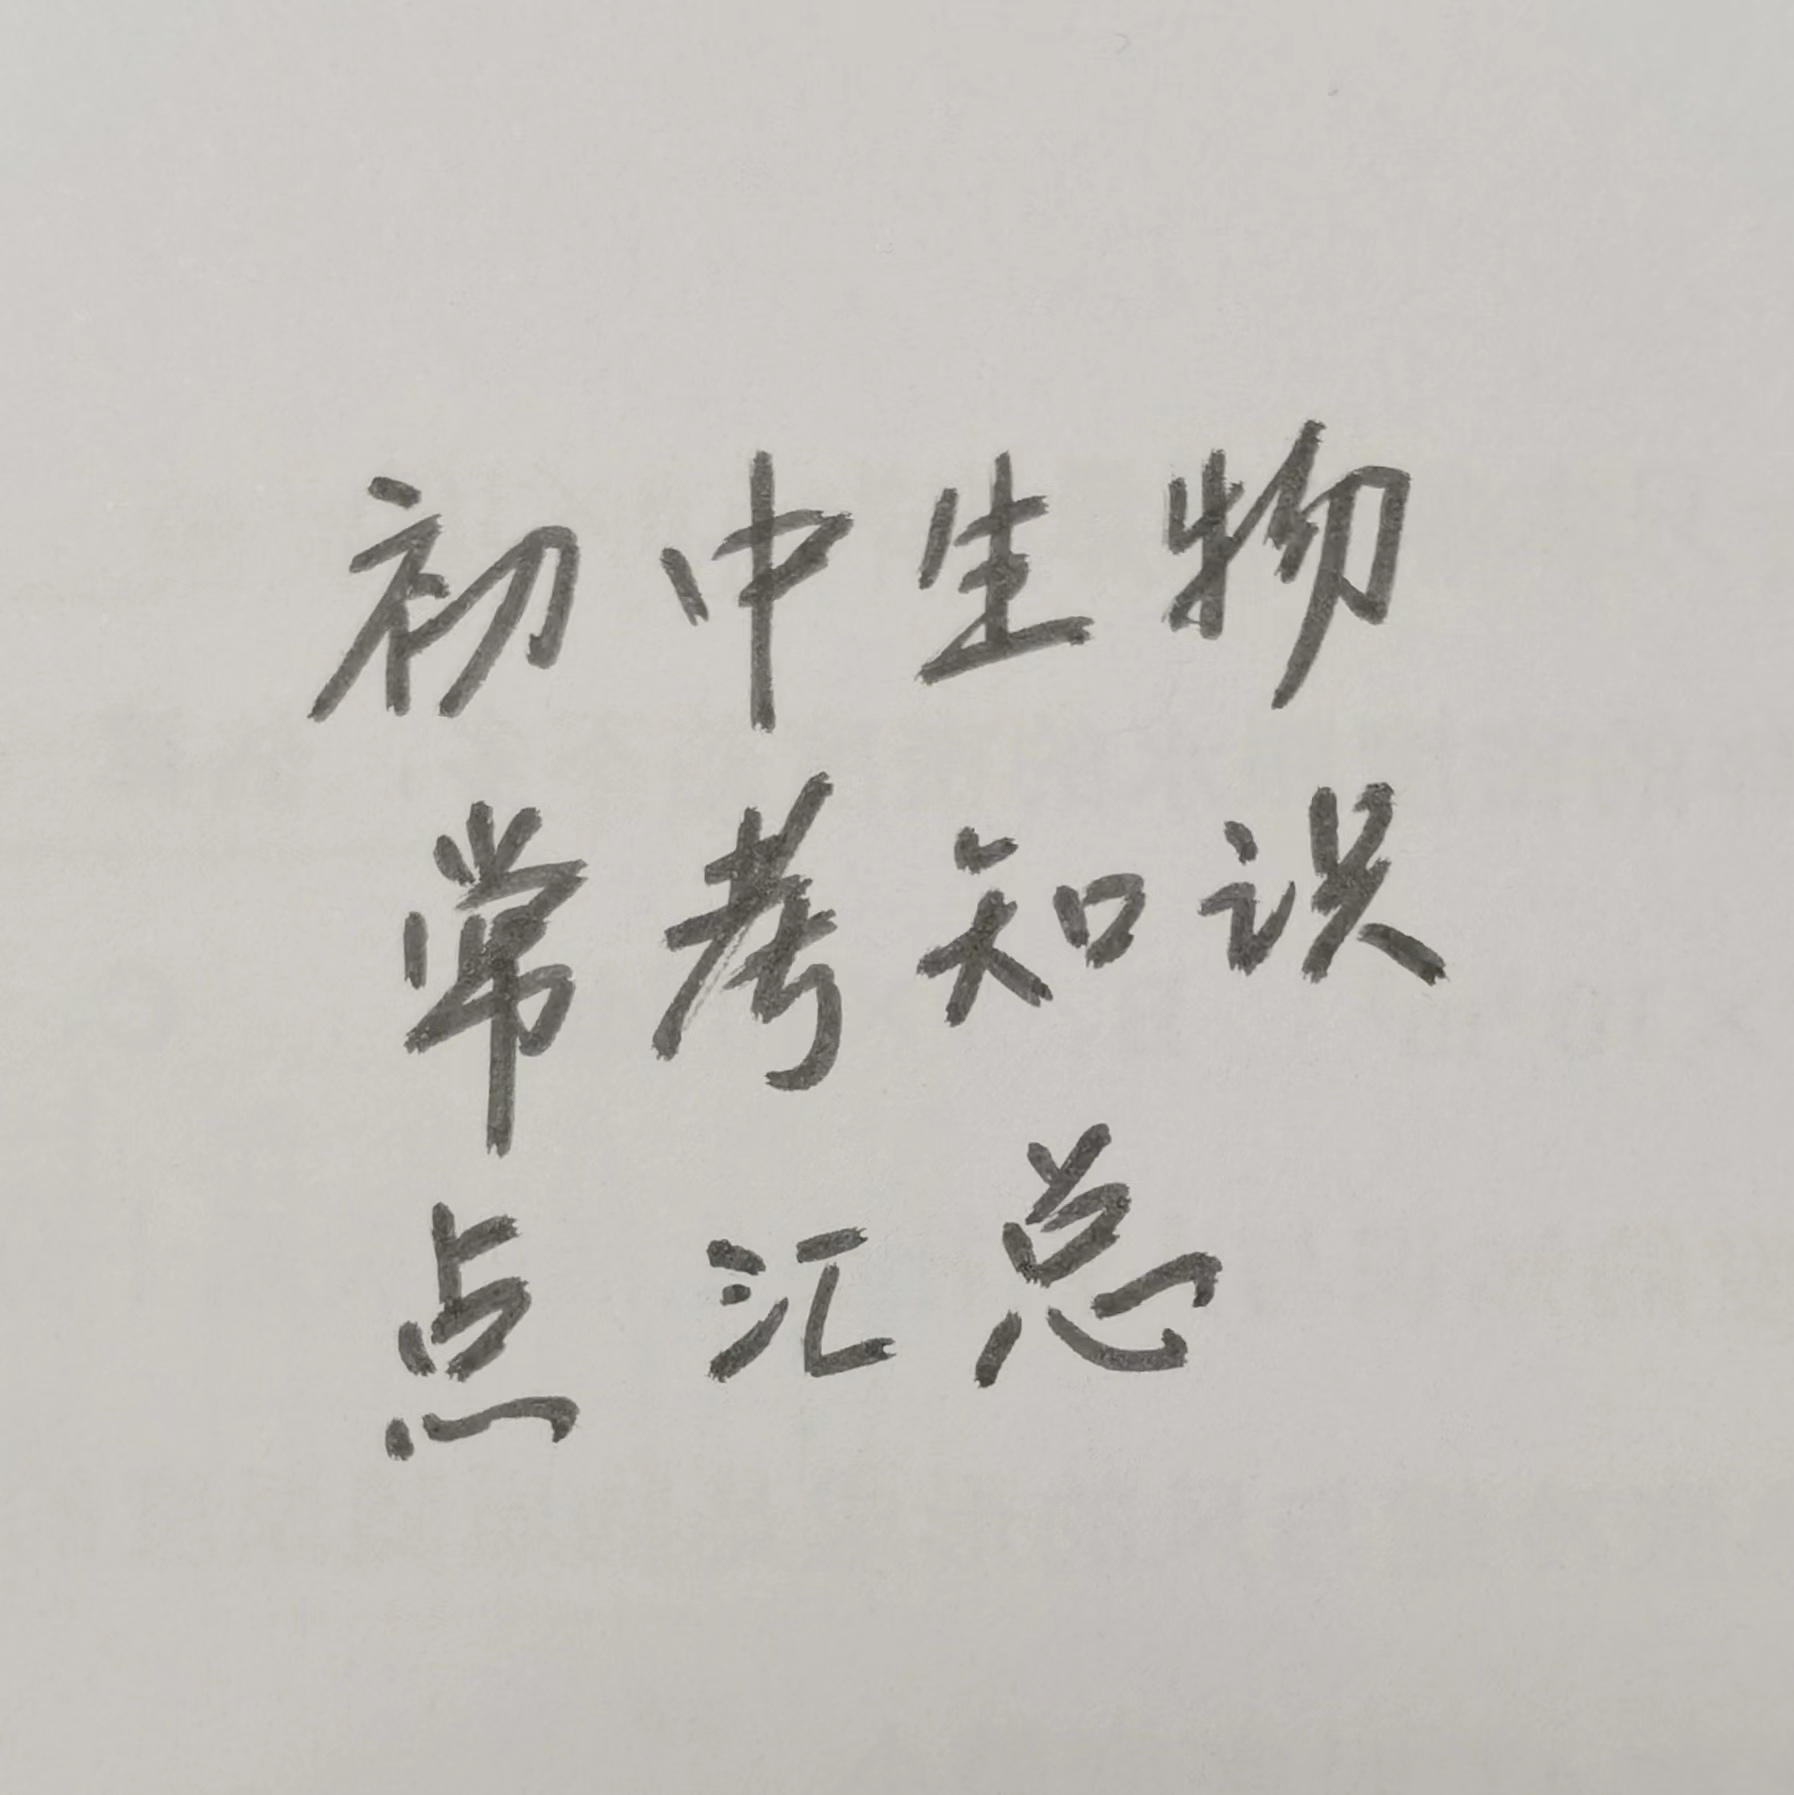 初中生物
常考知识
点汇总